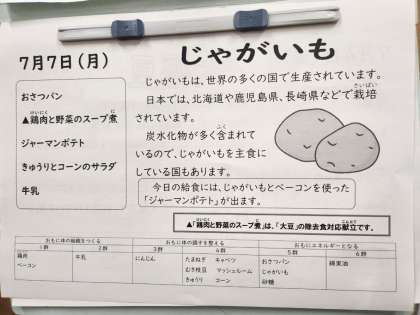 7月7日(月)
じゃがいも
おさつパン
▲鶏肉と野菜のスープ煮
ジャーマンポテト
きゅうりとコーンのサラダ
牛乳
じゃがいもは、世界の多くの国で生産されています。
日本では、北海道や鹿児島県、長崎県などで栽培
されています。
炭水化物が多く含まれて
いるので、じゃがいもを主食に
している国もあります。
今日の給食には、じゃがいもとベーコンを使った
「ジャーマンポテト」が出ます。
▲「鶏肉と野菜のスープ煮」は、「大豆」の除去食対応献立です。
おもに体の組織をつくる おもに体の調子を整える おもにエネルギーとなる
1群 2群 3群 4群 5群 6群
鶏肉 牛乳 にんじん たまねぎ キャベツ おさつパン 綿実油
ベーコン むき枝豆 マッシュルーム じゃがいも
きゅうり コーン 砂糖